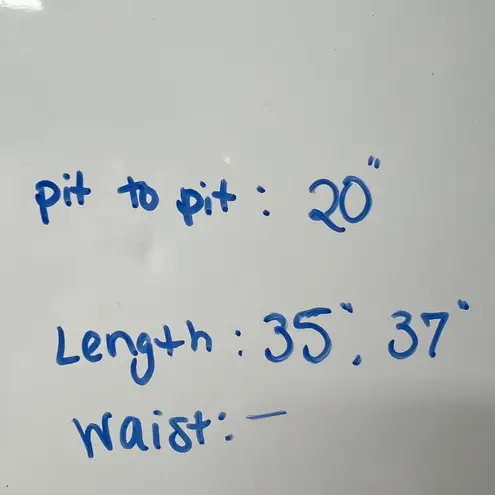 pit to pit: 20"
Length: 35", 37"
Waist: —